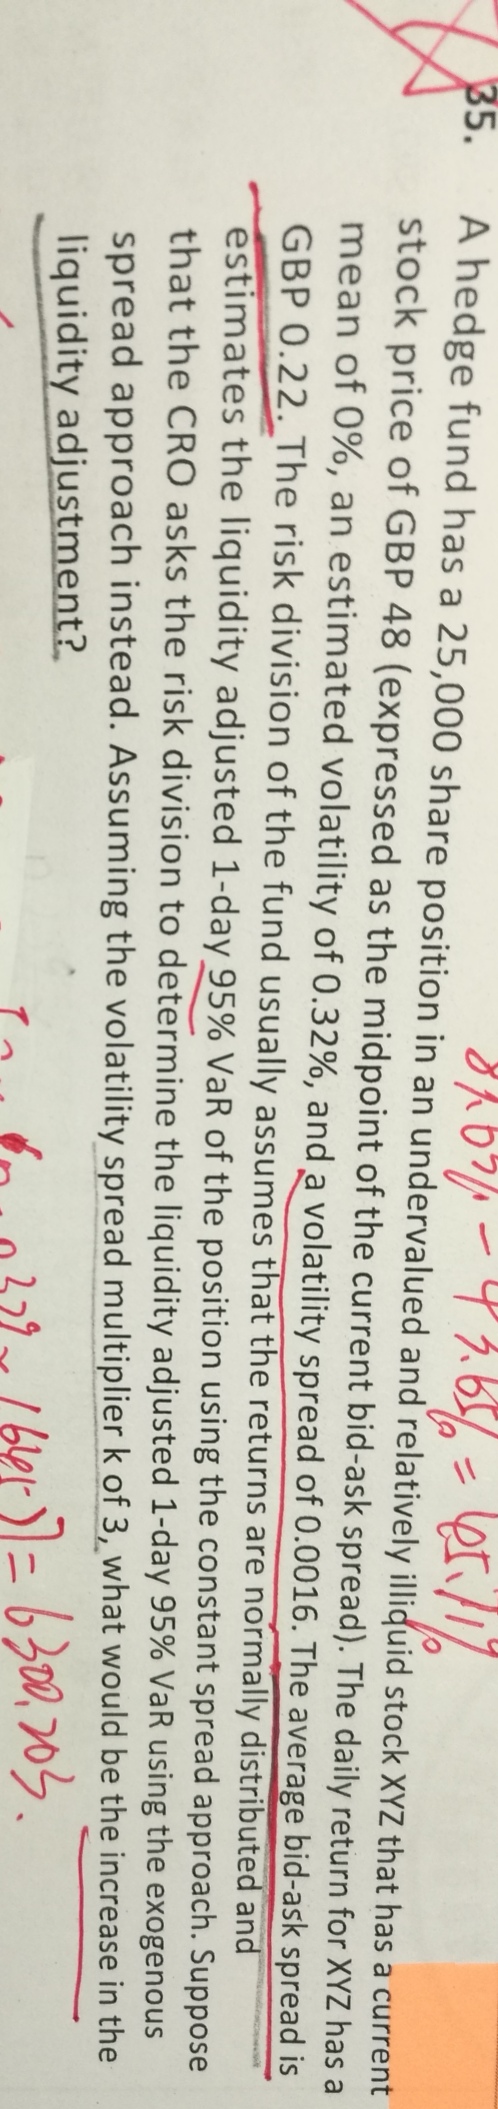 35. A hedge fund has a 25,000 share position in an undervalued and relatively illiquid stock XYZ that has a current
stock price of GBP 48 (expressed as the midpoint of the current bid-ask spread). The daily return for XYZ has a
mean of 0%, an estimated volatility of 0.32%, and a volatility spread of 0.0016. The average bid-ask spread is
GBP 0.22. The risk division of the fund usually assumes that the returns are normally distributed and
estimates the liquidity adjusted 1-day 95% VaR of the position using the constant spread approach. Suppose
that the CRO asks the risk division to determine the liquidity adjusted 1-day 95% VaR using the exogenous
spread approach instead. Assuming the volatility spread multiplier k of 3, what would be the increase in the
liquidity adjustment?
= 6300.203.